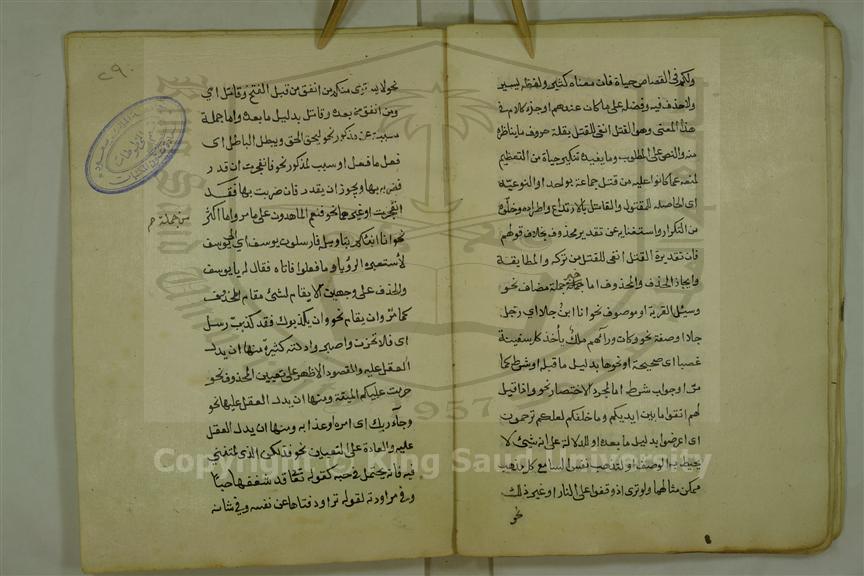 ولكم في القصاص حياة فان معناه كثير ولفظه يسير
ولا حذف فيه وفضله على ما كان عندهم اوجز كلام في
هذا المعنى وهو القتل انفى للقتل بقلة حروف ما يناظره
منه والنص على المطلوب وما يفيده تنكير حياة من التعظيم
لمنعه عما كانوا عليه من قتل جماعة بواحد او النوعية
اى الحاصلة للمقتول والقاتل بالارتداع واطراده وخلوه
من التكرار واستغنائه عن تقدير محذوف بخلاف قولهم
فان تقديره القتل انفى للقتل من تركه والمطابقة
وايجاز الحذف والمحذوف اما جزء جملة مضاف نحو
وسئل القرية او موصوف نحو انا ابن جلا اى رجل
جلا او صفة نحو وكان وراءهم ملك يأخذ كل سفينة
غصبا اى صحيحة او نحوها بدليل ما قبله او شرط كما
مر او جواب شرط اما لمجرد الاختصار نحو واذا قيل
لهم اتقوا ما بين ايديكم وما خلفكم لعلكم ترحمون
اى اعرضوا بدليل ما بعده او للدلالة على انه شئ لا
يحيط به الوصف او لتذهب نفس السامع كل مذهب
ممكن مثالهما ولو ترى اذ وقفوا على النار او غير ذلك
نحو
٢٩
نحو لا يستوى منكم من انفق من قبل الفتح وقاتل اى
ومن انفق من بعده وقاتل بدليل ما بعده واما جملة
مسببة عن مذكور نحو ليحق الحق ويبطل الباطل اى
فعل ما فعل او سبب لمذكور نحو فانفجرت ان قدر
فضربه بها ويجوز ان يقدر فان ضربت بها فقد
انفجرت او غيرهما نحو فنعم الماهدون على ما مر واما اكثر
من جملة
نحو انا انبئكم بتأويله فارسلون يوسف اى الى يوسف
لاستعبره الرؤيا وما فعلوا فاتاه فقال له يا يوسف
والحذف على وجهين ان لا يقام لشئ مقام المحذوف
كما مر وان يقام نحو وان يكذبوك فقد كذبت رسل
اى فلا تحزن واصبر وادلته كثيرة منها ان يدل
العقل عليه والمقصود الاظهر على تعيين المحذوف نحو
حرمت عليكم الميتة ومنها ان يدل العقل عليهما نحو
وجاء ربك اى امره او عذابه ومنها ان يدل العقل
عليه والعادة على التعيين نحو فذلكن الذى لمتننى
فيه فانه يحتمل فى حبه لقوله تعالى قد شغفها حبا
وفى مراودته لقوله تراود فتاها عن نفسه وفى شانه
Copyright © King Saud University
1957